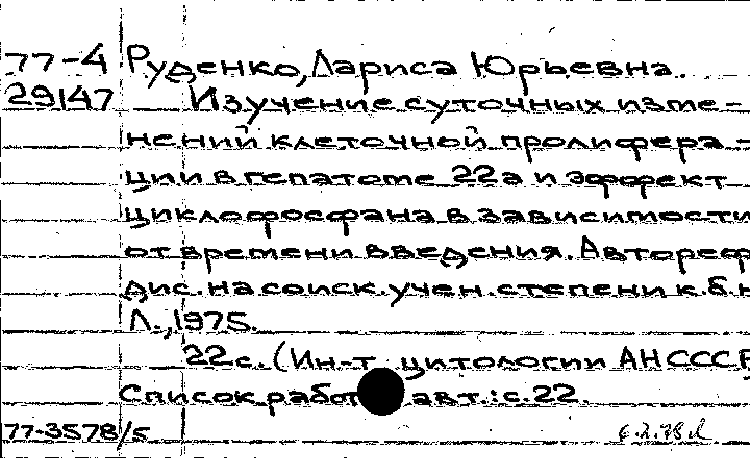 77-4 Руденко, Лариса Юрьевна.
29147 Изучение суточных изме-
нений клеточной пролифера-
ции в гепатоме 22а и эффект
циклофосфана в зависимости
от времени введения. Автореф
дис. на соиск. учен. степени к. б. н
Л., 1975.
22 с. (Ин-т цитологии АН СССР
Список работ авт.: с. 22.
77-3578/5